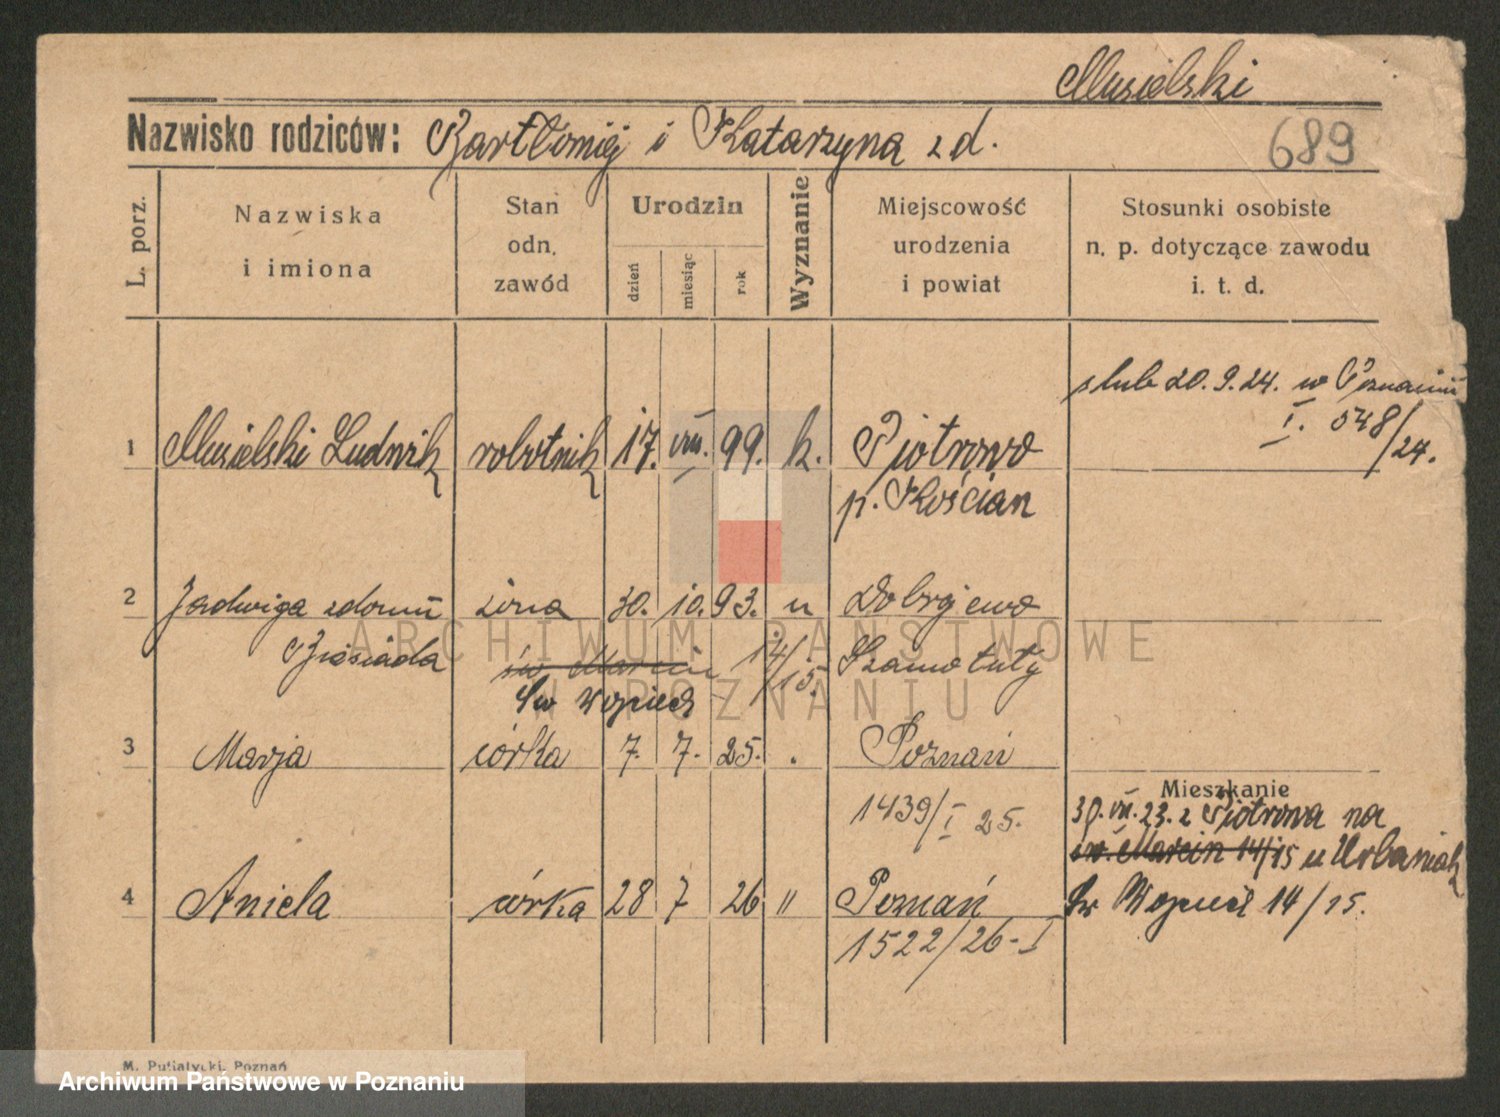 Musielski
Nazwisko rodziców: Bartłomiej i Katarzyna z d.
689
L. porz.
Nazwiska
i imiona
Stan
odn.
zawód
Urodzin
dzień
miesiąc
rok
Wyznanie
Miejscowość
urodzenia
i powiat
Stosunki osobiste
n. p. dotyczące zawodu
i. t. d.
ślub 20.9.24. w Poznaniu
I. 548/24.
1 Musielski Ludwik robotnik 17. VIII. 99. k. Piotrowo
p. Kościan
2 Jadwiga z domu żona 30. 10. 93. " Dobrojewo
Biesiada św Marcin 14/15. Szamotuły
Św Wojciech
3 Marja córka 7. 7. 25. " Poznań
1439/I 25.
Mieszkanie
VII. 23. z Piotrowa na
św. Marcin 14/15 u Urbaniak
4 Aniela córka 28 7 26 " Poznań
Św Wojciech 14/15.
1522/26-I
M. Putiatycki, Poznań
ARCHIWUM PAŃSTWOWE
W POZNANIU
Archiwum Państwowe w Poznaniu